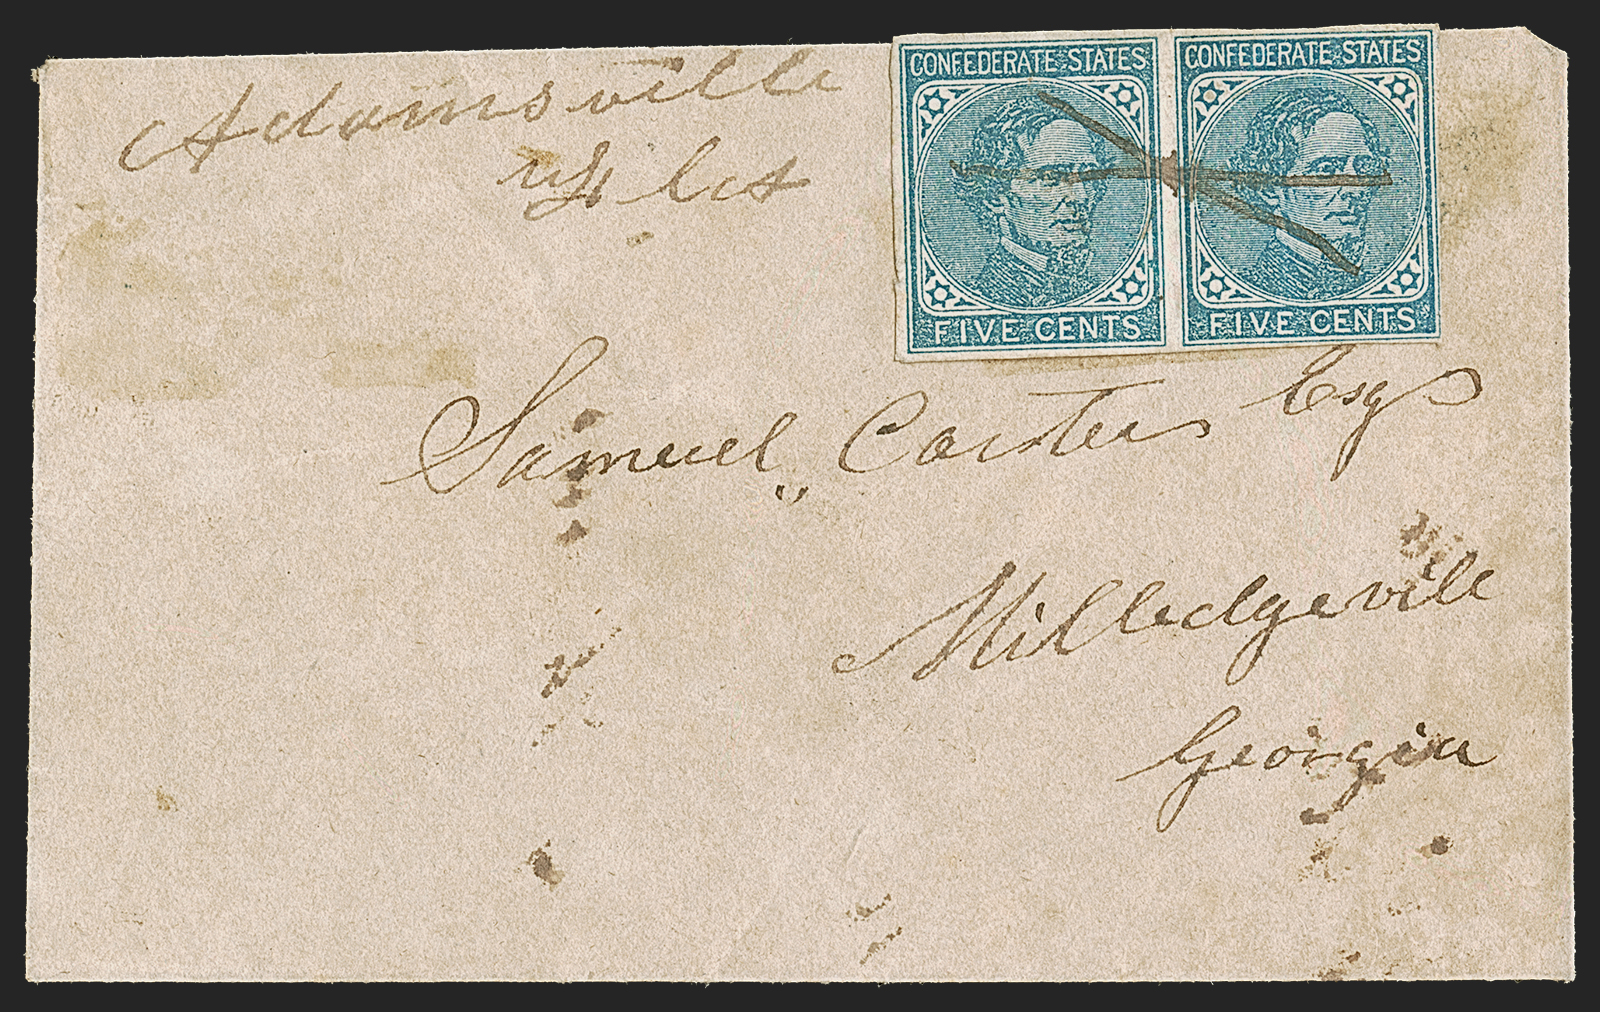 Adamsville
CONFEDERATE STATES
FIVE CENTS
CONFEDERATE STATES
FIVE CENTS
Samuel Carter Esqr
Milledgeville
Georgia